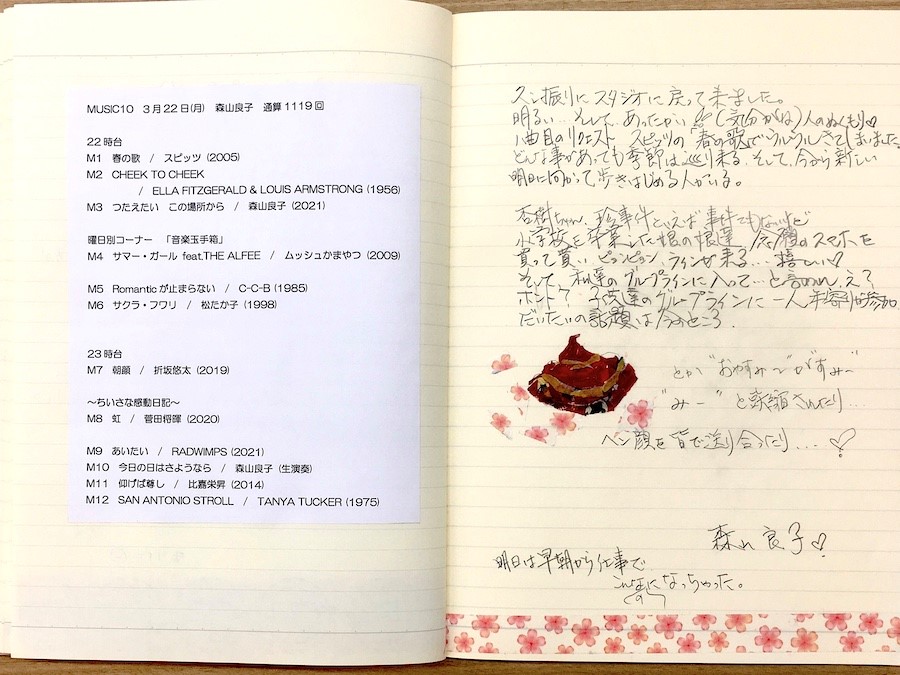 MUSIC10　3月22日(月)　森山良子　通算1119回
22時台
M1　春の歌　/　スピッツ（2005）
M2　CHEEK TO CHEEK
/　ELLA FITZGERALD & LOUIS ARMSTRONG（1956）
M3　つたえたい　この場所から　/　森山良子（2021）
曜日別コーナー　「音楽玉手箱」
M4　サマー・ガール feat.THE ALFEE　/　ムッシュかまやつ（2009）
M5　Romanticが止まらない　/　C-C-B（1985）
M6　サクラ・フワリ　/　松たか子（1998）
23時台
M7　朝顔　/　折坂悠太（2019）
～ちいさな感動日記～
M8　虹　/　菅田将暉（2020）
M9　あいたい　/　RADWIMPS（2021）
M10　今日の日はさようなら　/　森山良子（生演奏）
M11　仰げば尊し　/　比嘉栄昇（2014）
M12　SAN ANTONIO STROLL　/　TANYA TUCKER（1975）
久し振りにスタジオに戻って来ました。
明るい…そして、あったかい（気分がね）人のぬくもり♡
1曲目のリクエスト、スピッツの「春の歌」でウルウルさてしまいました
どんな事があっても季節は巡り来る、そして、今から新しい
明日に向かって歩きはじめる人がいる。
杏樹ちゃん、珍事件といえば事件でもないけど
小学校を卒業した孫達、念願のスマホを
買って貰い、ピンピン、ラインが来る…嬉しい♡
そして、私達のグループラインに入って…と言われ、え？
ホント？ 子供達のグループラインに一人年寄りが参加
だいたいの話題は今のところ、
とか"おやすみ～"が"すみ～"
"みー"と短縮さんたり…
ヘン顔を皆で送り合ったり…♡
森山良子♡
明日は早朝から仕事で
こんなになっちゃった。